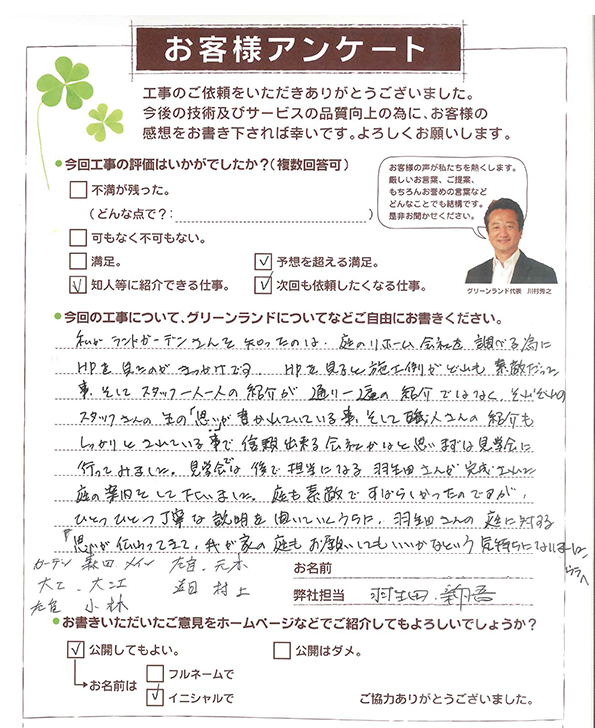 お客様アンケート
工事のご依頼をいただきありがとうございました。
今後の技術及びサービスの品質向上の為に、お客様の
感想をお書き下されば幸いです。よろしくお願いします。
●今回工事の評価はいかがでしたか?(複数回答可)
不満が残った。
(どんな点で?: )
可もなく不可もない。
満足。
✓ 予想を超える満足。
✓ 知人等に紹介できる仕事。
✓ 次回も依頼したくなる仕事。
お客様の声が私たちを熱くします。
厳しいお言葉、ご提案、
もちろんお誉めの言葉など
どんなことでも結構です。
是非お聞かせください。
グリーンランド代表 川村秀之
●今回の工事について、グリーンランドについてなどご自由にお書きください。
私がランドガーデンさんを知ったのは、庭のリホーム会社を調べる為に
HPを見たのがきっかけです。HPを見ると施工例がどれも素敵だった
事、そしてスタッフ一人一人の紹介が通り一遍の紹介ではなく、それぞれの
スタッフさんの生の「思い」が書かれていている事、そして職人さんの紹介も
しっかりとされている事で信頼出来る会社かなと思いまずは見学会に
行ってみました。見学会では後で担当になる羽生田さんが完成された
庭の案内をして下さいました。庭も素敵ですばらしかったのですが、
ひとつひとつ丁寧な説明を聞いていくうちに、羽生田さんの庭に対する
「思い」が伝わってきて、我が家の庭もお願いしてもいいかなという気持ちになりました。
ウラへ
ガーデン 森田 メイン 左官、元木
大工、大江 村上
左官 小林
お名前
弊社担当 羽生田
●お書きいただいたご意見をホームページなどでご紹介してもよろしいでしょうか?
✓ 公開してもよい。
公開はダメ。
お名前は
フルネームで
✓ イニシャルで
ご協力ありがとうございました。